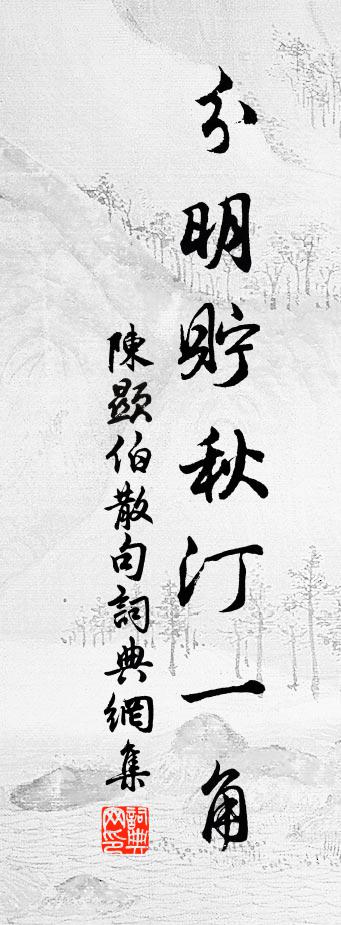 分明貯秋汀一角
陳顯伯散句詞典網集
詞典网印